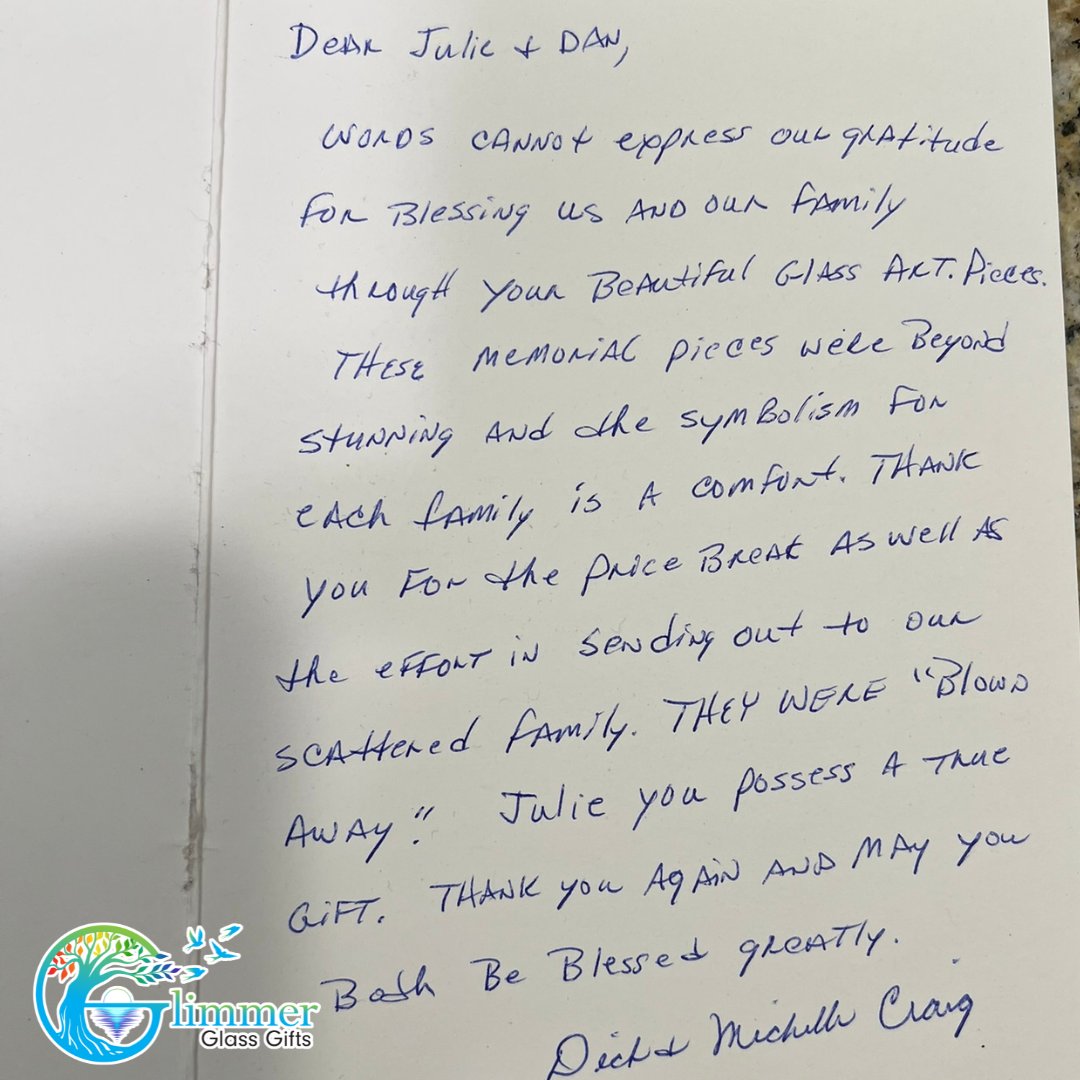 Dear Julie + Dan,
Words cannot express our gratitude
for Blessing us and our family
through your Beautiful Glass Art. Pieces.
These memorial pieces were Beyond
stunning and the symbolism for
each family is a comfort. Thank
you for the price Break as well as
the effort in sending out to our
scattered family. They were "Blown
Away". Julie you possess a true
Gift. Thank you again and may you
Both Be Blessed greatly.
Dick + Michelle Craig
Glimmer
Glass Gifts